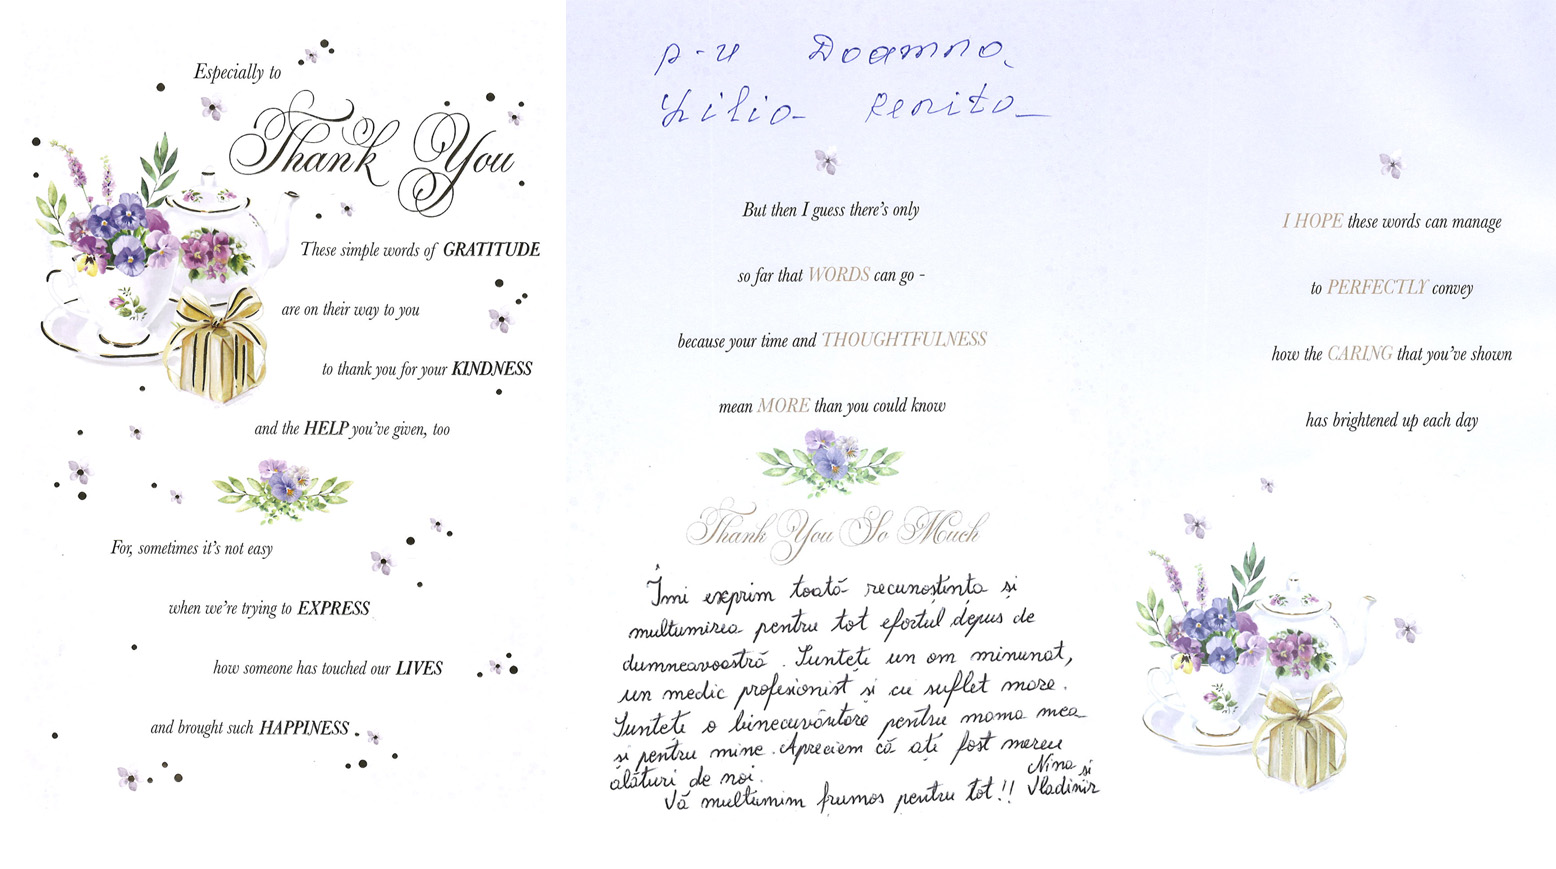 Especially to
Thank You
These simple words of GRATITUDE
are on their way to you
to thank you for your KINDNESS
and the HELP you've given, too
For, sometimes it's not easy
when we're trying to EXPRESS
how someone has touched our LIVES
and brought such HAPPINESS.
p-u Doamna
Lilia Reniță
But then I guess there's only
so far that WORDS can go -
because your time and THOUGHTFULNESS
mean MORE than you could know
Thank You So Much
Îmi exprim toată recunoștința și
mulțumirea pentru tot efortul depus de
dumneavoastră. Sunteți un om minunat,
un medic profesionist și cu suflet mare.
Sunteți o binecuvântare pentru mama mea
și pentru mine. Apreciem că ați fost mereu
alături de noi.
Vă mulțumim frumos pentru tot!!
Nina și
Vladimir
I HOPE these words can manage
to PERFECTLY convey
how the CARING that you've shown
has brightened up each day